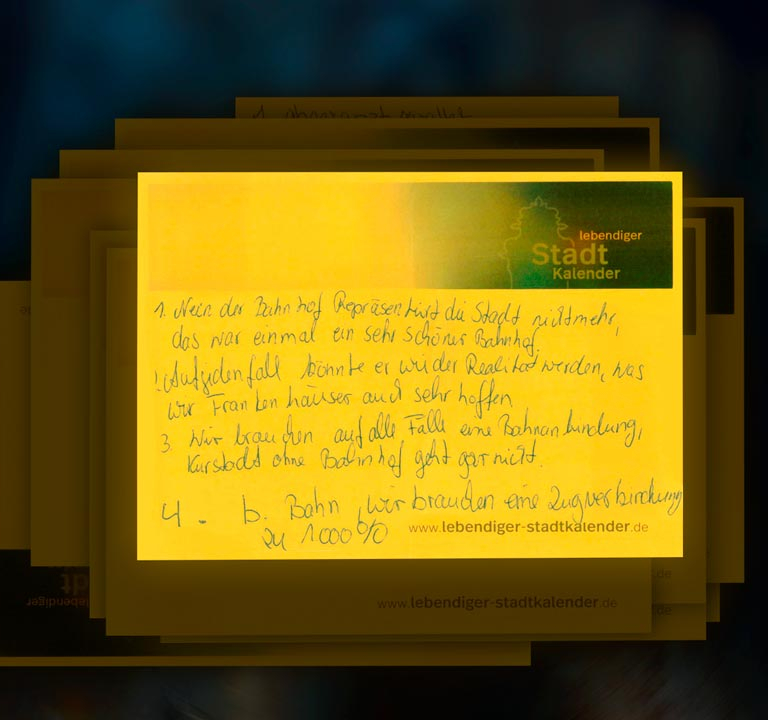 lebendiger
Stadt
Kalender
1. Nein der Bahnhof Repräsentirt die Stadt nicht mehr,
das war einmal ein sehr schöner Bahnhof.
! Auf jeden fall könnte er wieder Realität werden, was
wir Frankenhäuser auch sehr hoffen
3. Wir brauchen auf alle Fälle eine Bahnanbindung,
Kurstadt ohne Bahnhof geht gar nicht.
4. b. Bahn, wir brauchen eine Zugverbindung
zu 1000%
www.lebendiger-stadtkalender.de
www.lebendiger-stadtkalender.de
.de
.de
Stadt
lebendiger